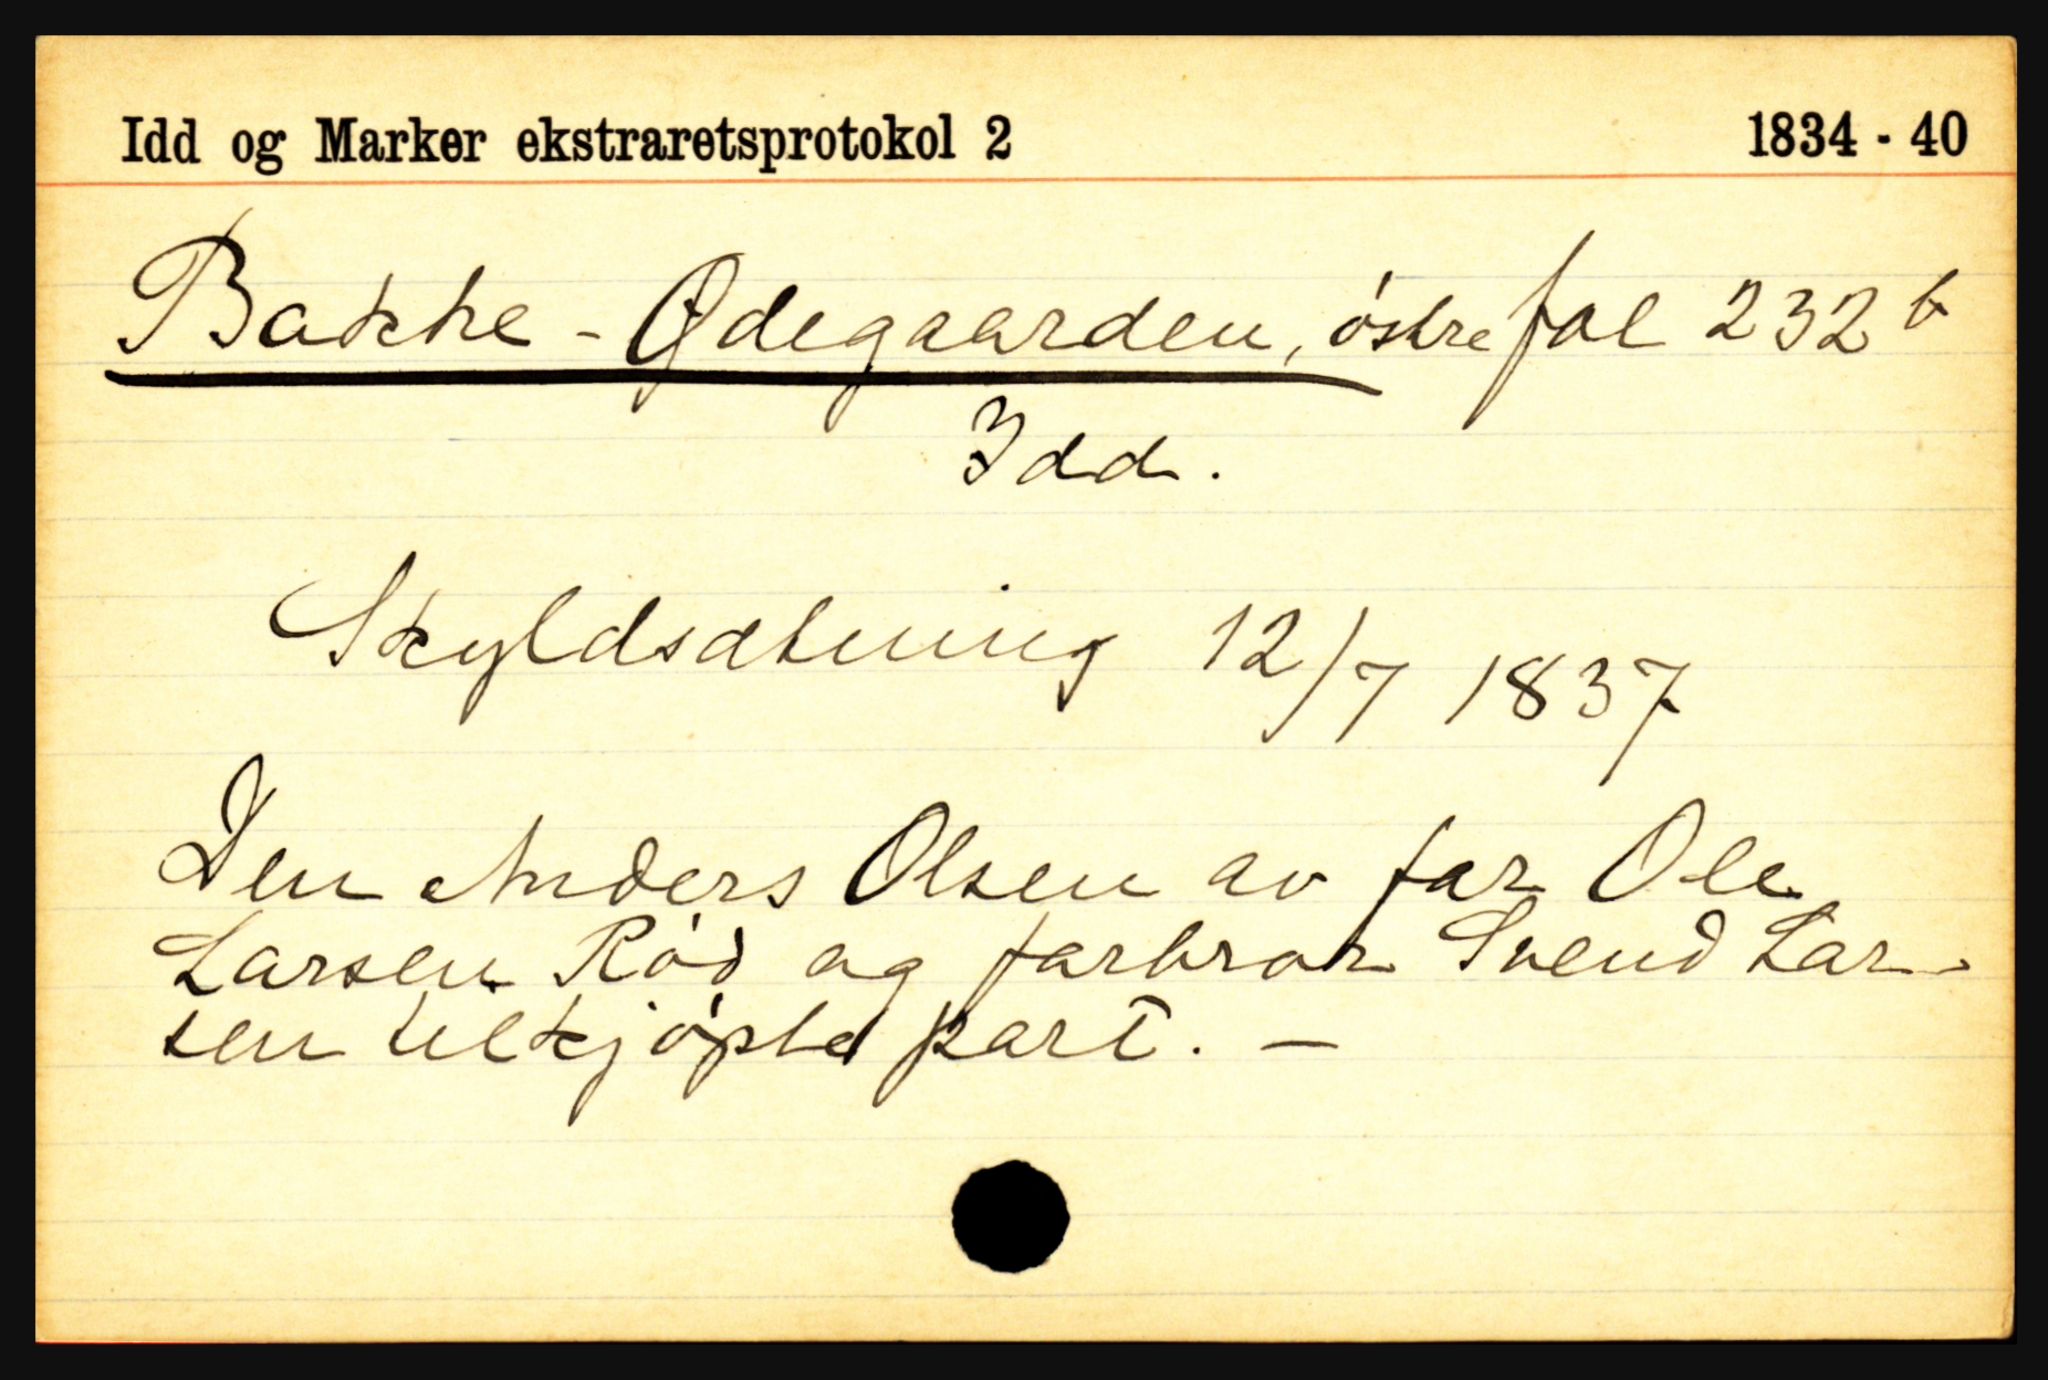 Idd og Marker ekstraretsprotokol 2 1834 - 40
Bakke - Ødegaarden, østre fol 232 b
Idd.
Skyldsætning 12/7 1837
Den Anders Olsen av far Ole
Larsen Rød og farbror Svend Lar-
sen tilkjøpte part. —